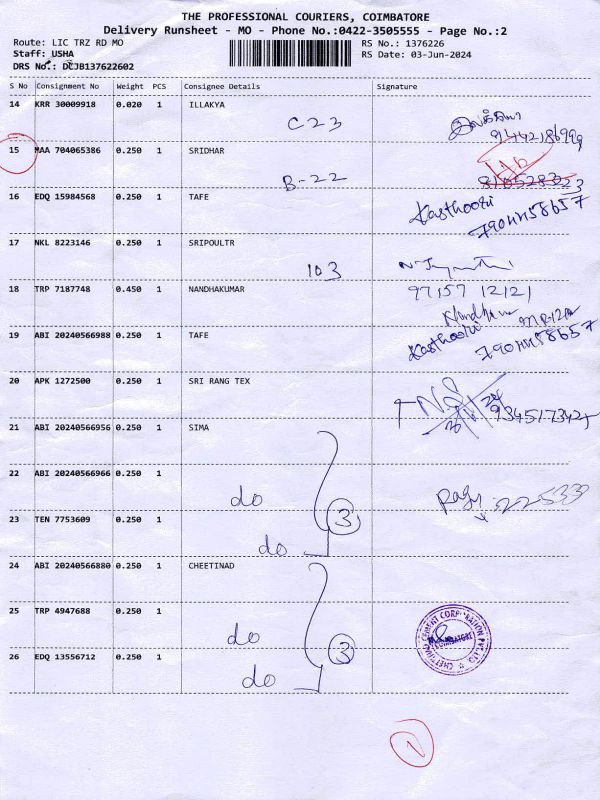 THE PROFESSIONAL COURIERS, COIMBATORE
Delivery Runsheet - MO - Phone No.:0422-3505555 - Page No.:2
Route: LIC TRZ RD MO RS No.: 1376226
Staff: USHA RS Date: 03-Jun-2024
DRS No.: DCJB137622602
S No Consignment No Weight PCS Consignee Details Signature
14 KRR 30009918 0.020 1 ILLAKYA
C23 இலக்கியா
15 MAA 704065386 0.250 1 SRIDHAR
B-22
16 EDQ 15984568 0.250 1 TAFE Kasthoori
17 NKL 8223146 0.250 1 SRIPOULTR
103
18 TRP 7187748 0.450 1 NANDHAKUMAR 97157 12121
19 ABI 20240566988 0.250 1 TAFE Kasthoori
20 APK 1272500 0.250 1 SRI RANG TEX
21 ABI 20240566956 0.250 1 SIMA
22 ABI 20240566966 0.250 1
do
23 TEN 7753609 0.250 1 3
do
24 ABI 20240566880 0.250 1 CHEETINAD
25 TRP 4947688 0.250 1
do 3
26 EDQ 13556712 0.250 1
do
COIMBATORE